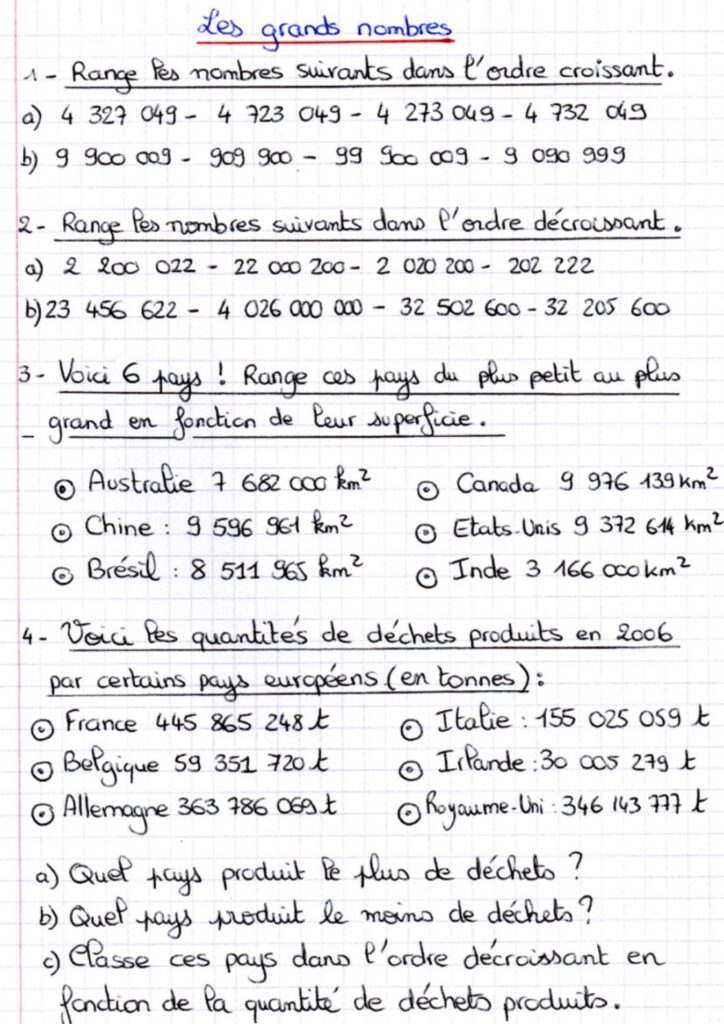 Les grands nombres
1 - Range les nombres suivants dans l'ordre croissant.
a) 4 327 049 - 4 723 049 - 4 273 049 - 4 732 049
b) 9 900 009 - 909 900 - 99 900 009 - 9 090 999
2 - Range les nombres suivants dans l'ordre décroissant.
a) 2 200 022 - 22 000 200 - 2 020 200 - 202 222
b) 23 456 622 - 4 026 000 000 - 32 502 600 - 32 205 600
3 - Voici 6 pays ! Range ces pays du plus petit au plus
grand en fonction de leur superficie.
Australie 7 682 000 km² Canada 9 976 139 km²
Chine : 9 596 961 km² Etats-Unis 9 372 614 km²
Brésil : 8 511 965 km² Inde 3 166 000 km²
4 - Voici les quantités de déchets produits en 2006
par certains pays européens (en tonnes) :
France 445 865 248 t Italie : 155 025 059 t
Belgique 59 351 720 t Irlande : 30 005 279 t
Allemagne 363 786 069 t Royaume-Uni : 346 143 777 t
a) Quel pays produit le plus de déchets ?
b) Quel pays produit le moins de déchets ?
c) Classe ces pays dans l'ordre décroissant en
fonction de la quantité de déchets produits.